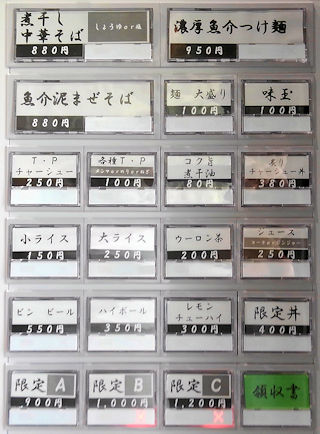 煮干し
中華そば
しょうゆor塩
880円
濃厚魚介つけ麺
950円
魚介泥まぜそば
880円
麺 大盛り
100円
味玉
100円
T・P
チャーシュー
250円
各種T・P
100円
コク旨
煮干油
80円
炙り
チャーシュー丼
380円
小ライス
150円
大ライス
250円
ウーロン茶
200円
ジュース
コーラorジンジャー
250円
ビン ビール
550円
ハイボール
350円
レモン
チューハイ
300円
限定丼
400円
限定A
900円
限定B
1,000円
限定C
1,200円
領収書